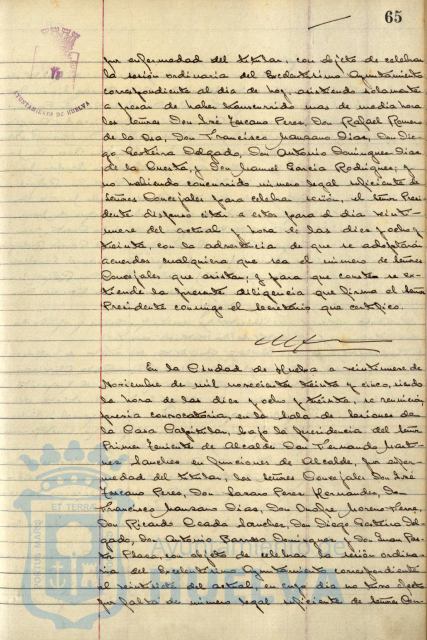 65
AYUNTAMIENTO DE HUELVA
por enfermedad del titular, con objeto de celebrar
la sesión ordinaria del Excelentísimo Ayuntamiento
correspondiente al día de hoy, asistiendo solamente
a pesar de haber transcurrido mas de media hora
los señores Don José Toscano Perez, Don Rafael Romero
de la Osa, Don Francisco Manzano Dias, Don Die-
go Gosteira Delgado, Don Antonio Dominguez Dias
de la Cuesta, y Don Manuel Garcia Rodriguez; y
no habiendo concurrido número legal suficiente de
señores Concejales para celebrar sesión, el señor Presi-
dente dispuso citar a estos para el día veinti-
nueve del actual y hora de las diez y ocho y
treinta, con la advertencia de que se adoptarán
acuerdos cualquiera que sea el número de señores
Concejales que asistan; y para que conste se ex-
tiende la presente diligencia que firma el señor
Presidente conmigo el Secretario que certifico.
En la Ciudad de Huelva a veintinueve de
Noviembre de mil novecientos treinta y cinco, siendo
la hora de las diez y ocho y treinta, se reunieron,
previa convocatoria, en la Sala de Sesiones de
la Casa Capitular, bajo la Presidencia del señor
Primer Teniente de Alcalde Don Fernando Marti-
nez Sanchez en funciones de Alcalde, por enfer-
medad del titular, los señores Concejales Don José
Toscano Perez, Don Lazaro Perez Hernandez, Don
Francisco Manzano Dias, Don Onofre Moreno
Don Ricardo Sanchez, Don Diego Gosteira Del-
gado, Don Antonio Barroso Dominguez y Don Juan
Plaza, con objeto de celebrar la sesión ordina-
ria del Excelentísimo Ayuntamiento correspondiente
al veintisiete del actual, en cuyo día no tuvo efecto
por falta de número legal suficiente de señores Con-
PORTUS MARIS ET TERRAE
HUELVA